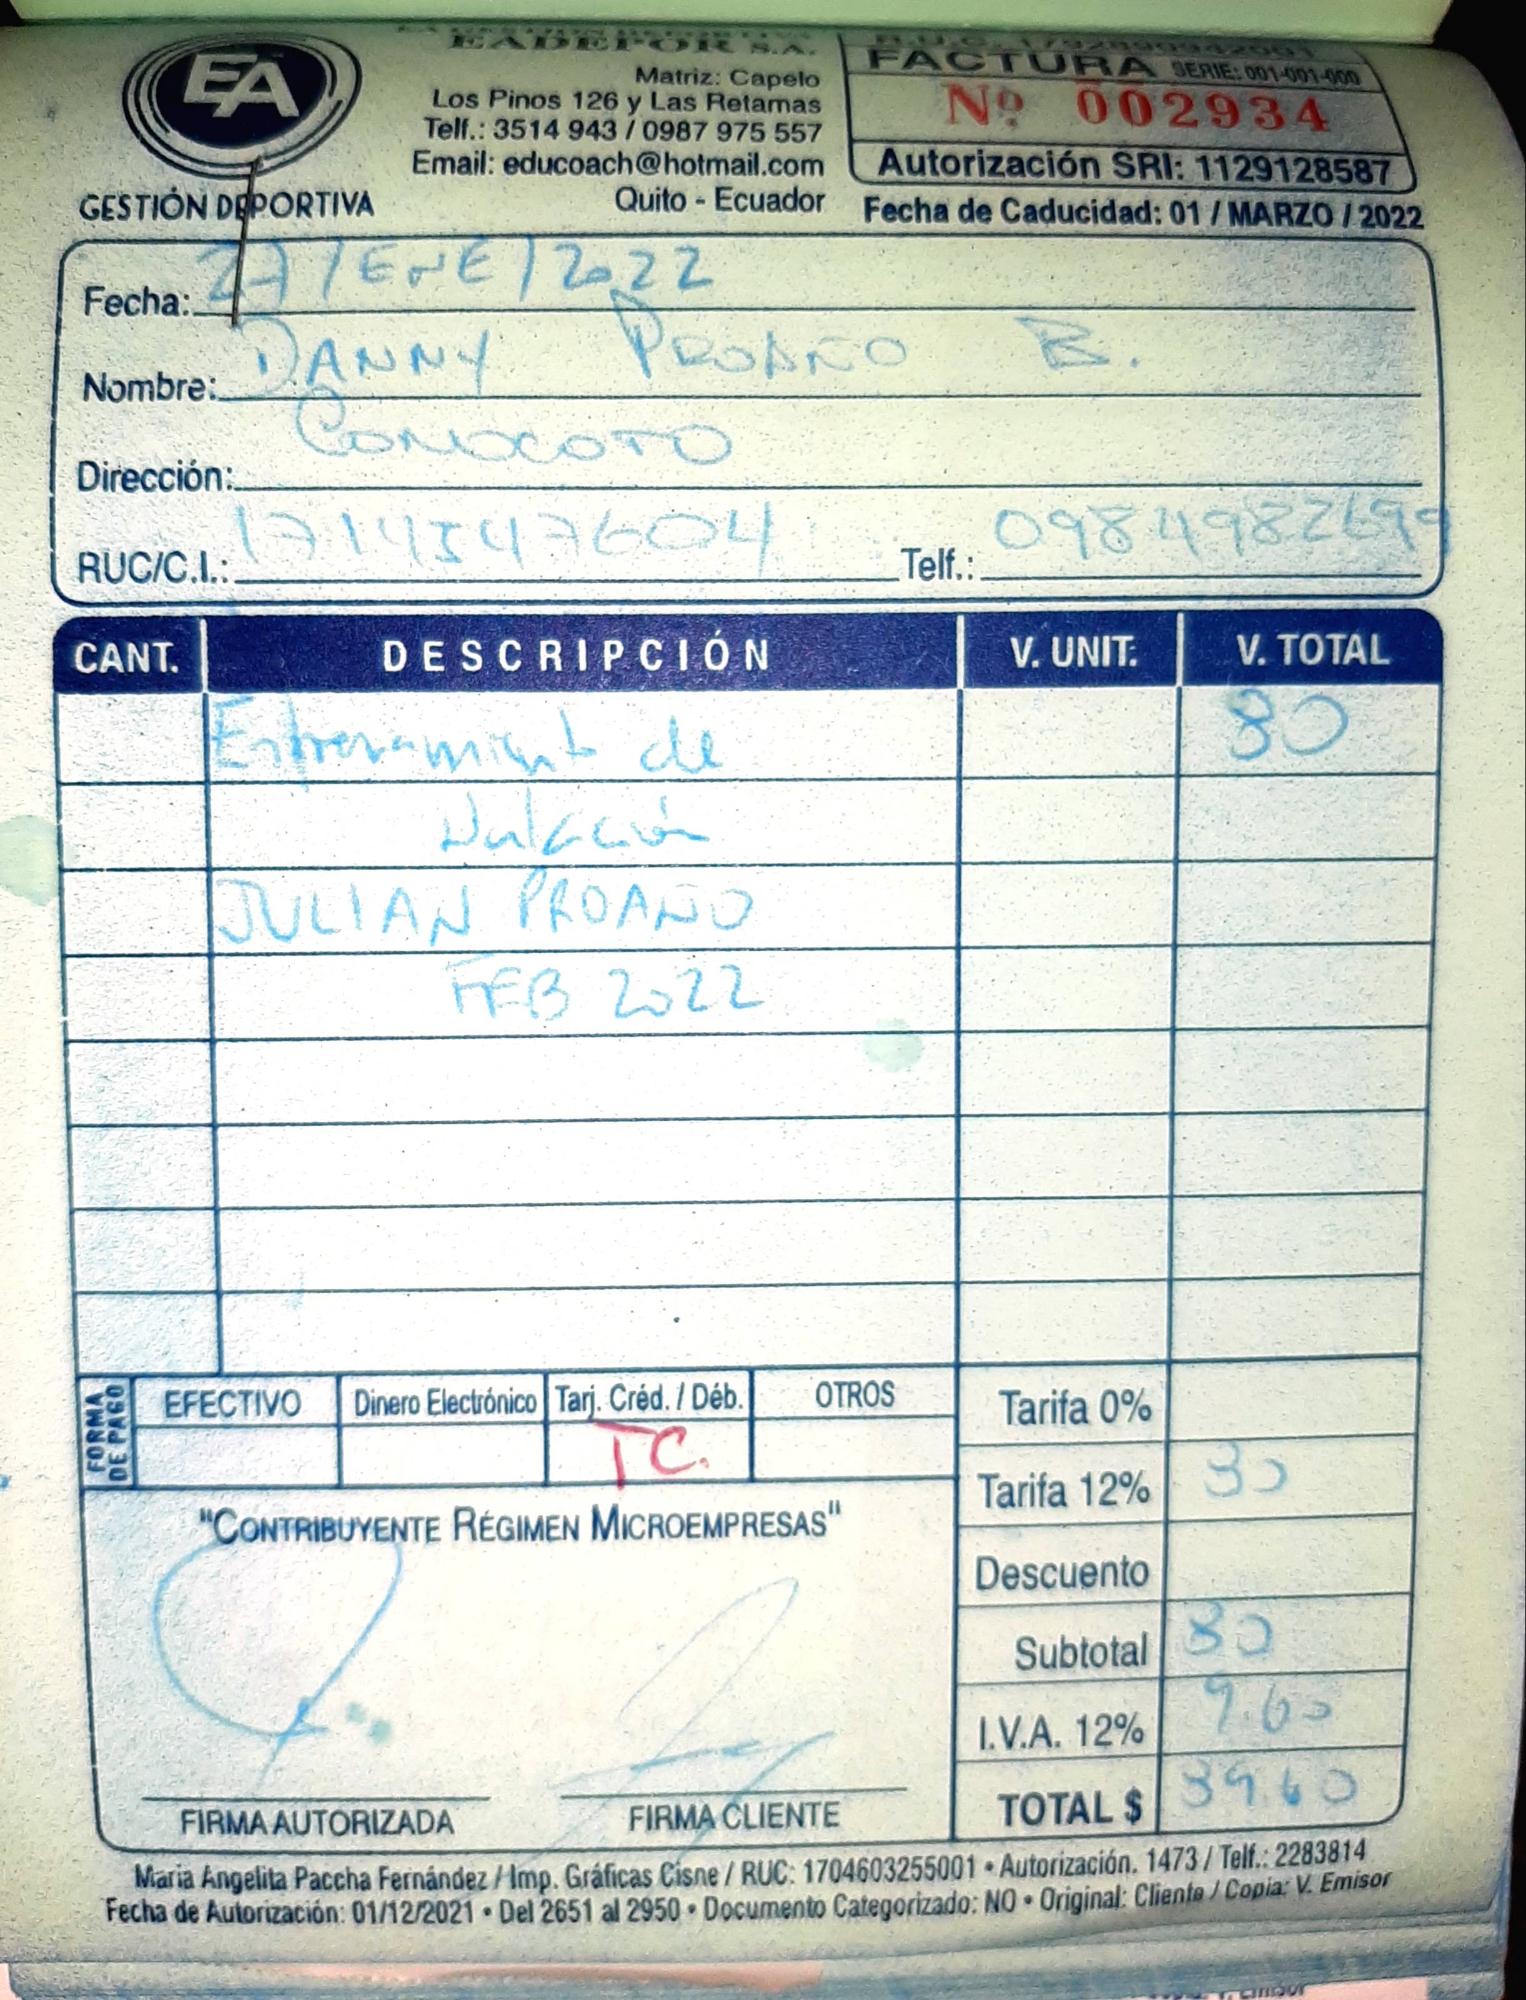 EA
GESTIÓN DEPORTIVA
EADEPOR S.A.
Matriz: Capelo
Los Pinos 126 y Las Retamas
Telf.: 3514 943 / 0987 975 557
Email: educoach@hotmail.com
Quito - Ecuador
FACTURA SERIE: 001-001-000
Nº 002934
Autorización SRI: 1129128587
Fecha de Caducidad: 01 / MARZO / 2022
Fecha: 27/ENE/2022
Nombre: DANNY PROAÑO B.
Dirección: CONOCOTO
RUC/C.I.: 1714547604 Telf.: 0984982699
CANT. DESCRIPCIÓN V. UNIT. V. TOTAL
Entrenamiento de 80
Natación
JULIAN PROAÑO
FEB 2022
FORMA DE PAGO
EFECTIVO Dinero Electrónico Tarj. Créd. / Déb. OTROS
TC.
Tarifa 0%
Tarifa 12% 80
Descuento
Subtotal 80
I.V.A. 12% 9.60
TOTAL $ 89.60
"CONTRIBUYENTE RÉGIMEN MICROEMPRESAS"
FIRMA AUTORIZADA FIRMA CLIENTE
Maria Angelita Paccha Fernández / Imp. Gráficas Cisne / RUC: 1704603255001 • Autorización. 1473 / Telf.: 2283814
Fecha de Autorización: 01/12/2021 • Del 2651 al 2950 • Documento Categorizado: NO • Original: Cliente / Copia: V. Emisor